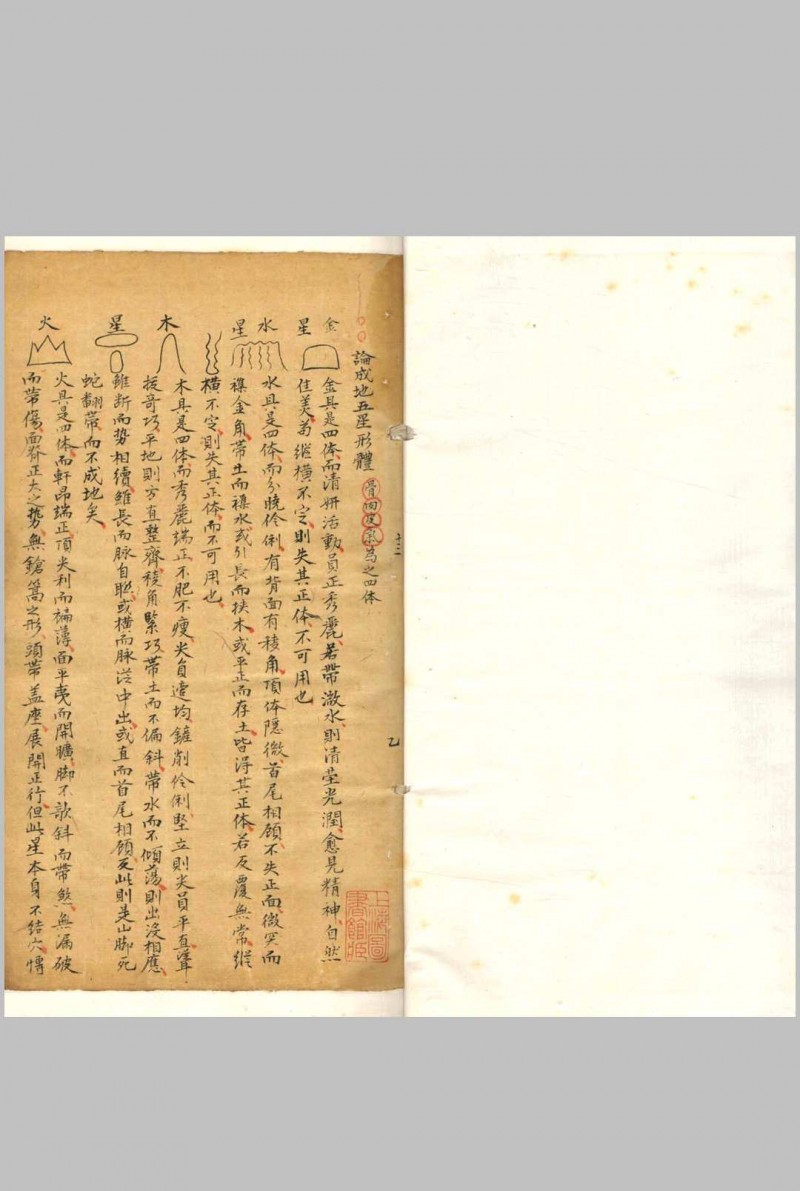 論成地五星形體 骨回皮氣為之四体
金星
金具是四体而清妍活動員正秀麗若帶漵水則清莹光潤愈見精神自然
佳美苟縱橫不定則失其正体不可用也
水星
水具是四体而分曉伶俐有背面有稜角頂体隱微首尾相顧不失正面微突而
禄金角帶土而禄水或引長而挾木或平正而存土皆得其正体若反覆無常縱
橫不定則失其正体而不可用也
木星
木具是四体而秀麗端正不肥不瘦尖負遠均鏟削伶俐堅立則尖員平直聳
拔奇巧平地則方直整齊稜角緊巧帶土而不偏斜帶水而不傾蕩則出没相應
雖断而势相續雖長而脉自聮或横而脉從中出或直而首尾相顧反此則是山脚死
蛇翻帶而不成地矣
火
火具是四体而軒昂端正頂尖利而褊薄面平夷而開曠脚不欹斜而帶煞無漏破
而帶傷面脊正大之勢無鎗篙之形頭帶盖座展開正行但此星本身不结穴愽
十二
乙
上海圖書館藏